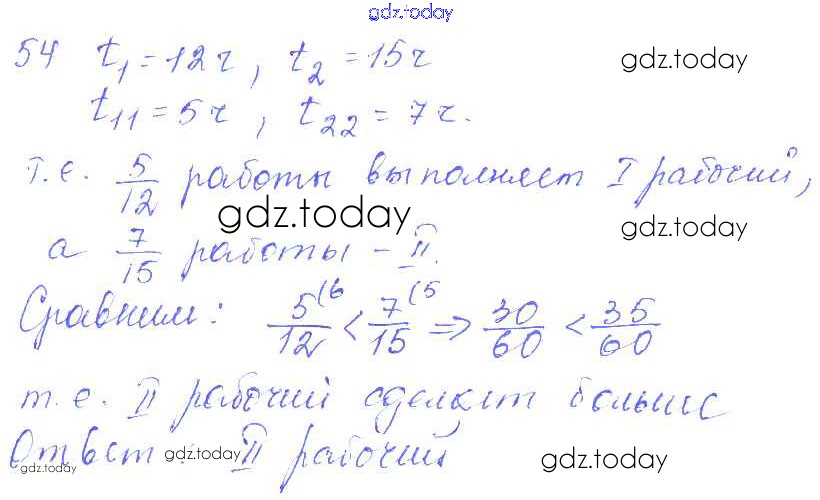 gdz.today
54 t₁ = 12ч, t₂ = 15ч gdz.today
t₁₁ = 5ч, t₂₂ = 7ч.
т.е. 5/12 работы выполняет I рабочий,
gdz.today gdz.today
а 7/15 работы – II.
Сравним: 5(6/12 < 7(5/15 ⇒ 30/60 < 35/60
т.е. II рабочий сделает больше
Ответ II рабочий
gdz.today gdz.today gdz.today